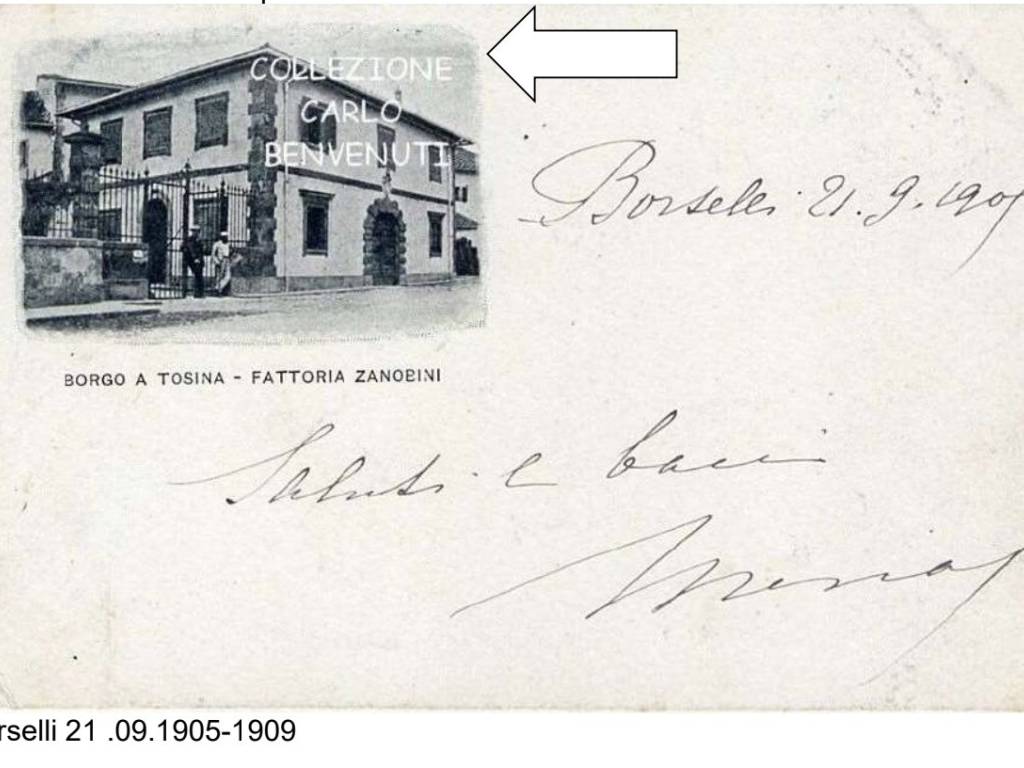 COLLEZIONE
CARLO
BENVENUTI
Borselli 21.9.190
BORGO A TOSINA - FATTORIA ZANOBINI
Saluti e baci
rselli 21 .09.1905-1909